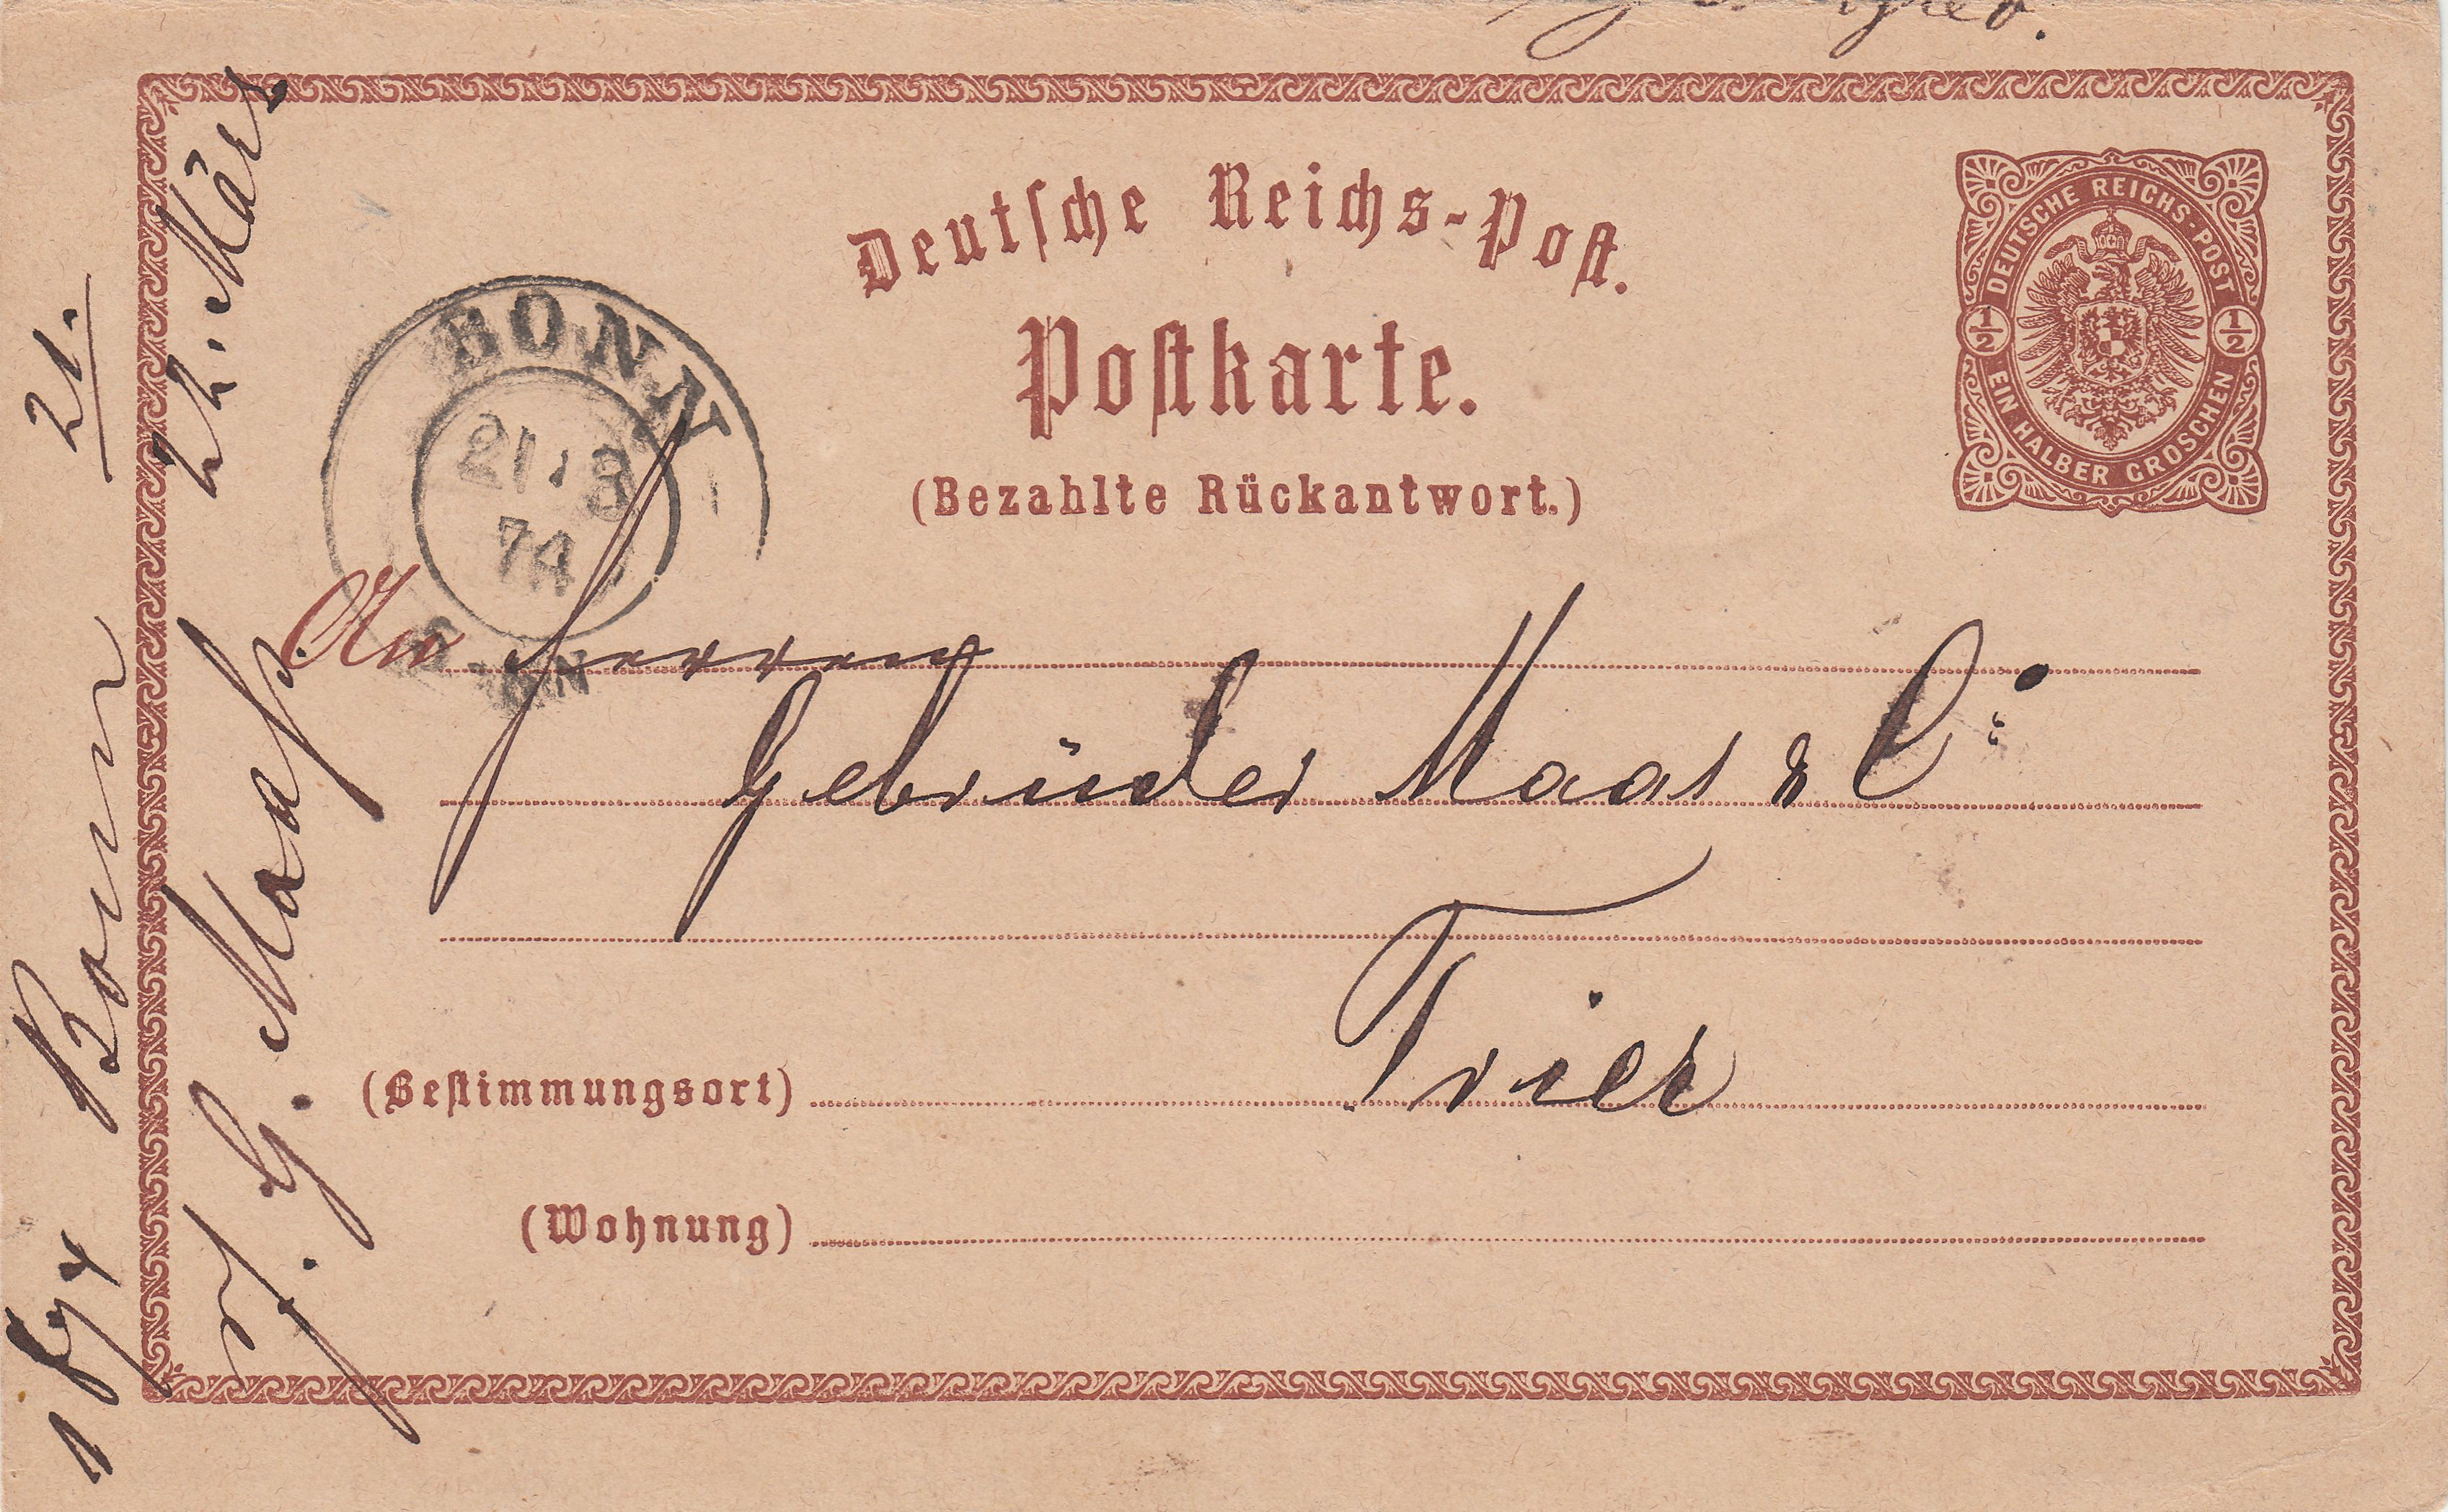 Deutsche Reichs-Post.
Postkarte.
(Bezahlte Rückantwort.)
DEUTSCHE REICHS-POST
1/2 1/2
EIN HALBER GROSCHEN
BONN
21 3
74
An Herren
Gebrüder Maas & C:
Trier
(Bestimmungsort)
(Wohnung)
1874 Bonn 21.
G. Maass. 22. März